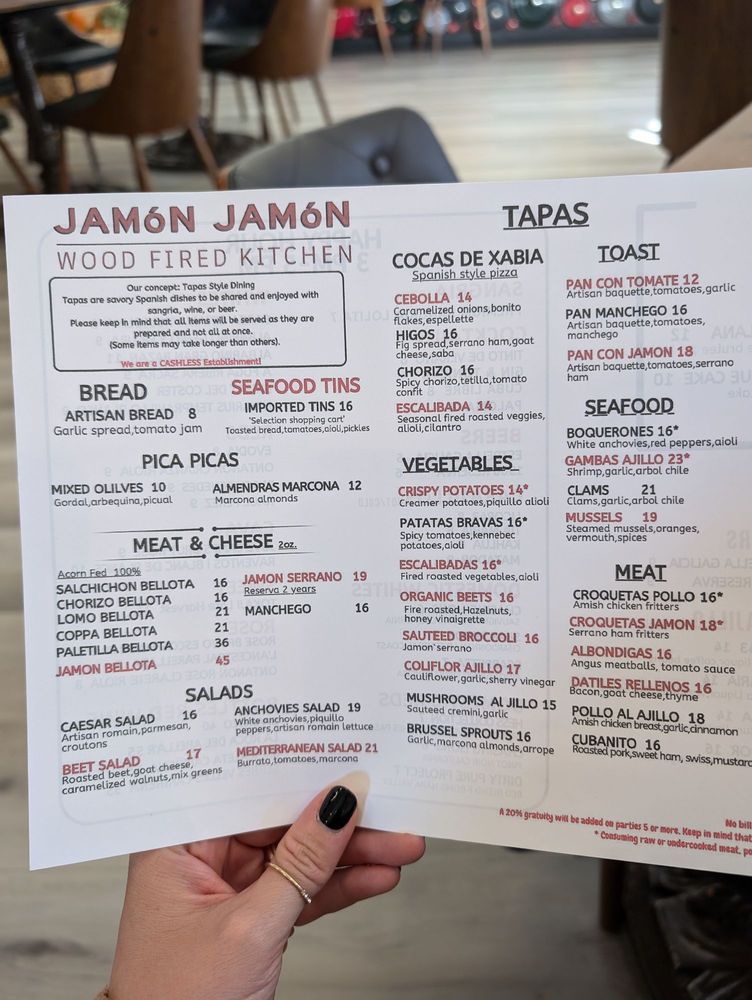 JAMóN JAMóN
WOOD FIRED KITCHEN
Our concept: Tapas Style Dining
Tapas are savory Spanish dishes to be shared and enjoyed with
sangria, wine, or beer.
Please keep in mind that all items will be served as they are
prepared and not all at once.
(Some items may take longer than others).
We are a CASHLESS Establishment!
BREAD
ARTISAN BREAD 8
Garlic spread,tomato jam
SEAFOOD TINS
IMPORTED TINS 16
'Selection shopping cart'
Toasted bread,tomatoes,aioli,pickles
PICA PICAS
MIXED OLILVES 10
Gordal,arbequina,picual
ALMENDRAS MARCONA 12
Marcona almonds
MEAT & CHEESE 2oz.
Acorn Fed 100%
SALCHICHON BELLOTA 16
CHORIZO BELLOTA 16
LOMO BELLOTA 21
COPPA BELLOTA 21
PALETILLA BELLOTA 36
JAMON BELLOTA 45
JAMON SERRANO 19
Reserva 2 years
MANCHEGO 16
SALADS
CAESAR SALAD 16
Artisan romain,parmesan,
croutons
BEET SALAD 17
Roasted beet,goat cheese,
caramelized walnuts,mix greens
ANCHOVIES SALAD 19
White anchovies,piquillo
peppers,artisan romain lettuce
MEDITERRANEAN SALAD 21
Burrata,tomatoes,marcona
TAPAS
COCAS DE XABIA
Spanish style pizza
CEBOLLA 14
Caramelized onions,bonito
flakes,espellette
HIGOS 16
Fig spread,serrano ham,goat
cheese,saba
CHORIZO 16
Spicy chorizo,tetilla,tomato
confit
ESCALIBADA 14
Seasonal fired roasted veggies,
alioli,cilantro
VEGETABLES
CRISPY POTATOES 14*
Creamer potatoes,piquillo alioli
PATATAS BRAVAS 16*
Spicy tomatoes,kennebec
potatoes,aioli
ESCALIBADAS 16*
Fired roasted vegetables,aioli
ORGANIC BEETS 16
Fire roasted,Hazelnuts,
honey vinaigrette
SAUTEED BROCCOLI 16
Jamon`serrano
COLIFLOR AJILLO 17
Cauliflower,garlic,sherry vinegar
MUSHROOMS Al JILLO 15
Sauteed cremini,garlic
BRUSSEL SPROUTS 16
Garlic,marcona almonds,arrope
TOAST
PAN CON TOMATE 12
Artisan baquette,tomatoes,garlic
PAN MANCHEGO 16
Artisan baquette,tomatoes,
manchego
PAN CON JAMON 18
Artisan baquette,tomatoes,serrano
ham
SEAFOOD
BOQUERONES 16*
White anchovies,red peppers,aioli
GAMBAS AJILLO 23*
Shrimp,garlic,arbol chile
CLAMS 21
Clams,garlic,arbol chile
MUSSELS 19
Steamed mussels,oranges,
vermouth,spices
MEAT
CROQUETAS POLLO 16*
Amish chicken fritters
CROQUETAS JAMON 18*
Serrano ham fritters
ALBONDIGAS 16
Angus meatballs, tomato sauce
DATILES RELLENOS 16
Bacon,goat cheese,thyme
POLLO AL AJILLO 18
Amish chicken breast,garlic,cinnamon
CUBANITO 16
Roasted pork,sweet ham, swiss,mustard
No bill
A 20% gratuity will be added on parties 5 or more. Keep in mind that
* Consuming raw or undercooked meat,